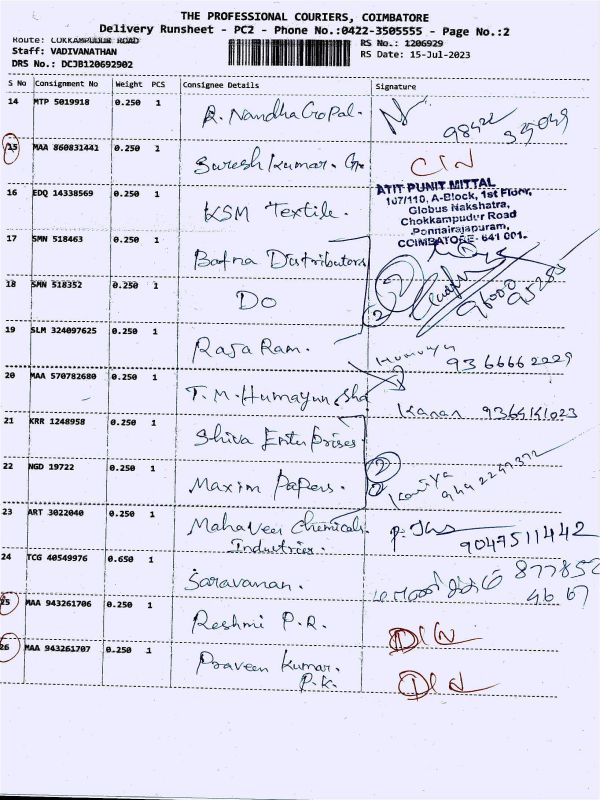 THE PROFESSIONAL COURIERS, COIMBATORE
Delivery Runsheet - PC2 - Phone No.:0422-3505555 - Page No.:2
Route: COKKAMPUDUR ROAD
RS No.: 1206929
Staff: VADIVANATHAN
RS Date: 15-Jul-2023
DRS No.: DCJB120692902
S No Consignment No Weight PCS Consignee Details Signature
14 MTP 5019918 0.250 1 R. NandhaGopal.
15 MAA 860831441 0.250 1 Sureshkumar.
16 EDQ 14338569 0.250 1 KSM Textile.
ATIT PUNIT MITTAL
107/110, A-Block, 1st Floor,
Globus Nakshatra,
Chokkampudur Road
Ponnairajapuram,
COIMBATORE- 641 001.
17 SMN 518463 0.250 1 Bafna Distributors
18 SMN 518352 0.250 1 DO
2
19 SLM 324097625 0.250 1 RajaRam.
Humuya 93 66662229
20 MAA 570782680 0.250 1 T.M.Humayun sha
Kanan
21 KRR 1248958 0.250 1 Shiva Enterprises
22 NGD 19722 0.250 1 Maxim Papers. 2
23 ART 3022040 0.250 1 Mahaveer Chemicals 9047511442
Industries.
24 TCG 40549976 0.650 1 Saravanan. 877852
4667
25 MAA 943261706 0.250 1 Reshmi P.R.
26 MAA 943261707 0.250 1 Praveen Kumar.
P.K.